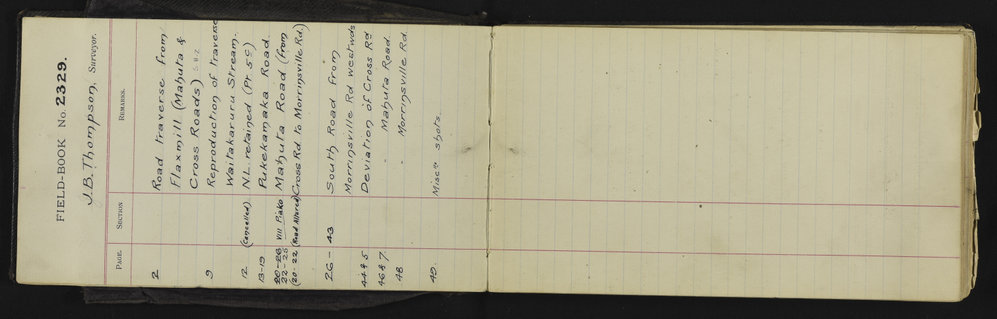 FIELD-BOOK No. 2329.
J.B. Thompson, Surveyor.
PAGE. SECTION REMARKS.
2 Road traverse from
Flaxmill (Mahuta &
Cross Roads)
9 Reproduction of traverse
Waitakaruru Stream.
12 (Cancelled) N.L. retained (Pt 5C)
13-19 Pukekamaka Road.
20-26 VIII Piako Mahuta Road (from
22-25
(20-22 (Road Altered) Cross Rd. to Morrinsville Rd.)
26-43 South Road from
Morrinsville Rd westwds
44&5 Deviation of Cross Rd
46&7 " Mahuta Road.
48 " Morrinsville Rd.
49. Misc. shots.